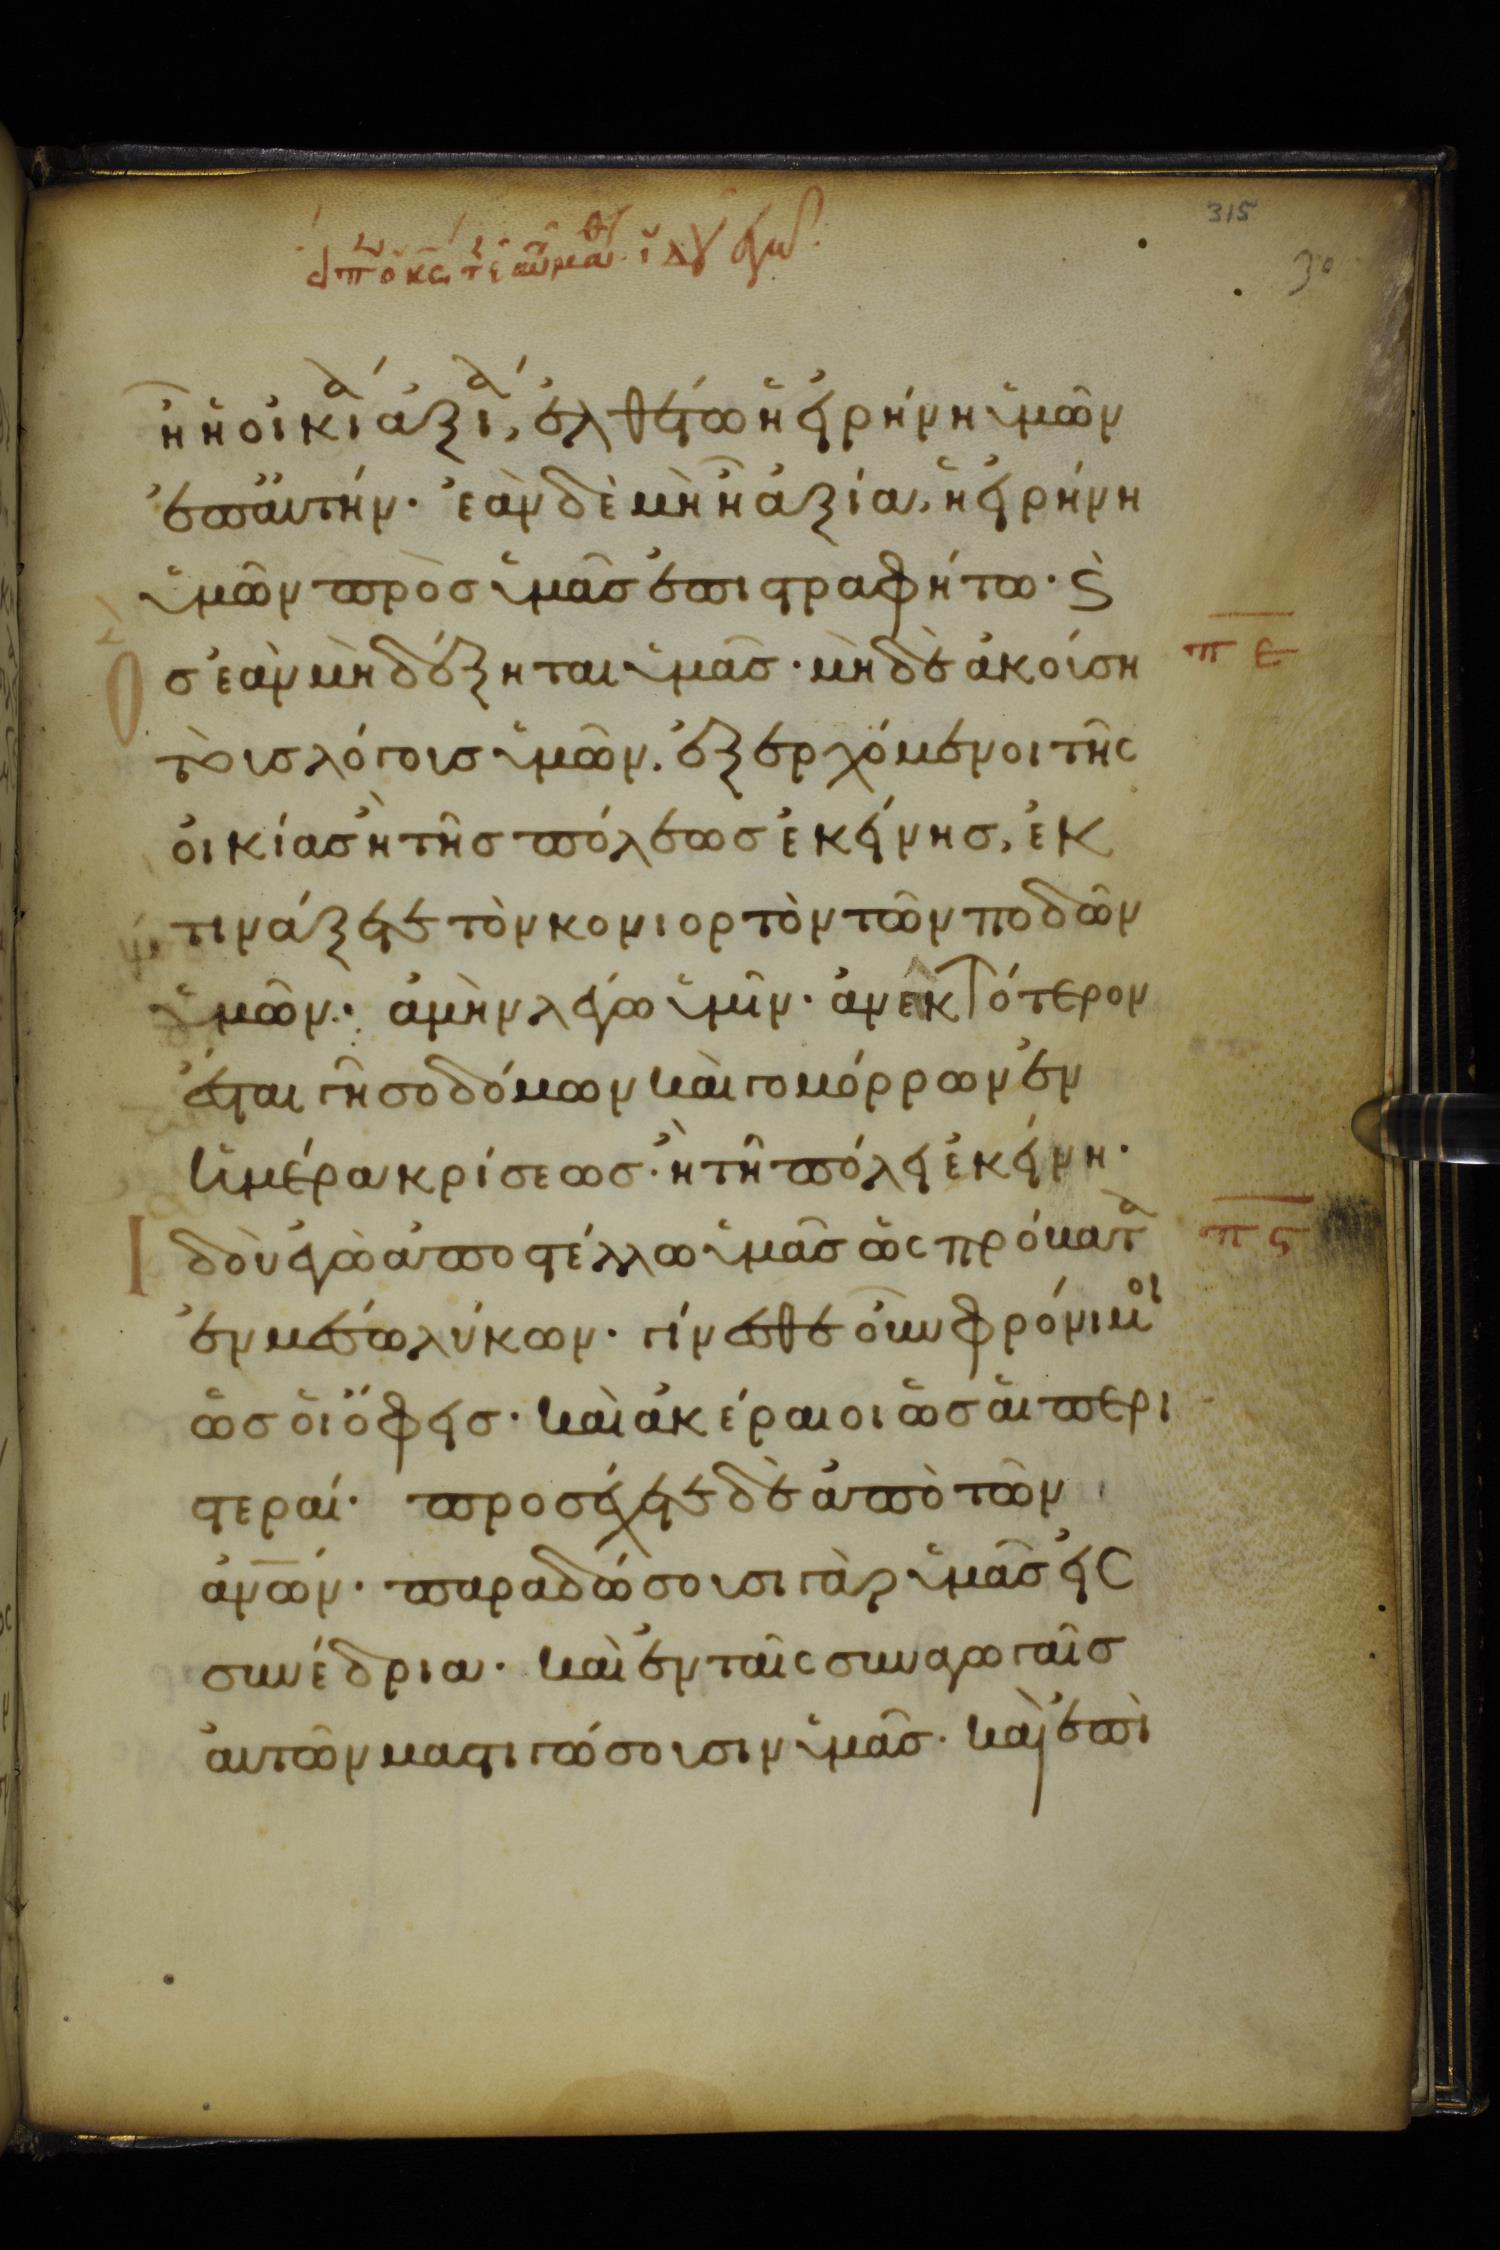 315
30
ᾖ ἡ οἰκία ἀξία, ἐλθέτω ἡ εἰρήνη ὑμῶν
ἐπ' αὐτήν· ἐὰν δὲ μὴ ᾖ ἀξία, ἡ εἰρήνη
ὑμῶν πρὸς ὑμᾶς ἐπιστραφήτω· Ϗ
Ὃς ἐὰν μὴ δέξηται ὑμᾶς· μηδὲ ἀκούση πε
τοὺς λόγους ὑμῶν. ἐξερχόμενοι τῆς
οἰκίας ἢ τῆς πόλεως ἐκείνης, ἐκ
τινάξατε τὸν κονιορτὸν τῶν ποδῶν
ὑμῶν· ἀμὴν λέγω ὑμῖν· ἀνεκτότερον
ἔσται γῆ σοδόμων καὶ γομόρρων ἐν
ἡμέρα κρίσεως· ἢ τῆ πόλει ἐκείνη·
Ἰδοὺ ἐγὼ ἀποστέλλω ὑμᾶς ὡς πρόβατα πς
ἐν μέσω λύκων· γίνεσθε οὖν φρόνιμοι
ὡς οἱ ὄφεις· καὶ ἀκέραιοι ὡς αἱ περι
στεραί· προσέχετε δὲ ἀπὸ τῶν
ἀνων· παραδώσουσι γὰρ ὑμᾶς εἰς
συνέδρια· καὶ ἐν ταῖς συναγωγαῖς
αὐτῶν μαστιγώσουσιν ὑμᾶς· καὶ ἐπὶ